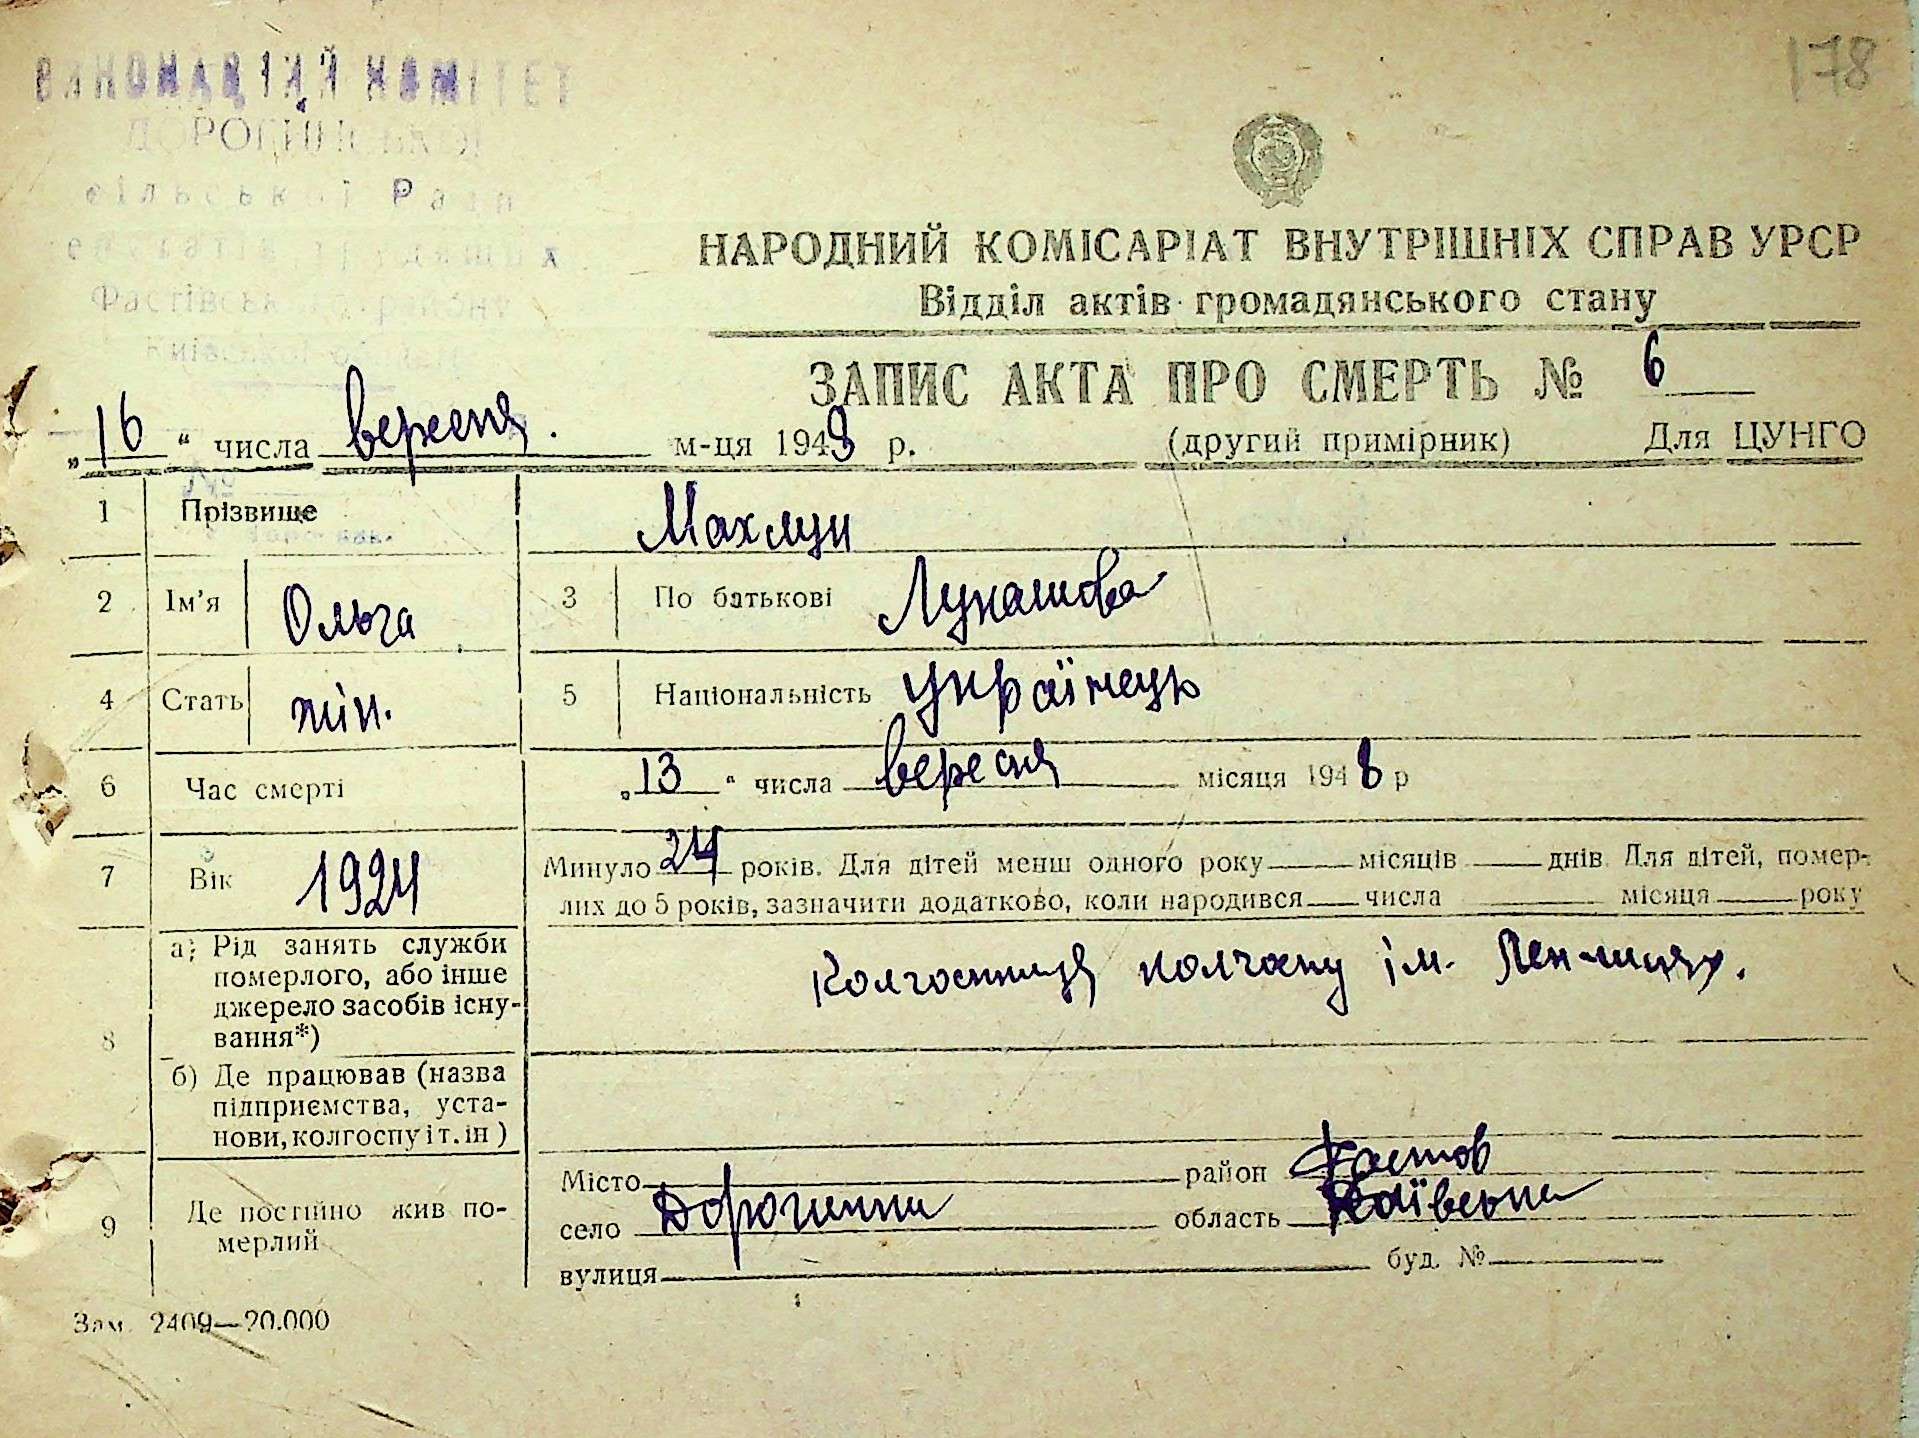 178
ВИКОНАВЧИЙ КОМІТЕТ
ДОРОГИНСЬКОЇ
сільської Ради
депутатів трудящих
Фастівського району
Київської області
НАРОДНИЙ КОМІСАРІАТ ВНУТРІШНІХ СПРАВ УРСР
Відділ актів громадянського стану
ЗАПИС АКТА ПРО СМЕРТЬ № 6
„16“ числа вересня. м-ця 1948 р. (другий примірник) Для ЦУНГО
1 Прізвище Махлун
2 Ім'я Ольга 3 По батькові Лукашова
4 Стать жін. 5 Національність українець
6 Час смерті „13“ числа вересня місяця 1948 р
7 Вік 1924 Минуло 24 років. Для дітей менш одного року місяців днів. Для дітей, помер-
лих до 5 років, зазначити додатково, коли народився числа місяця року
8 а) Рід занять служби
померлого, або інше
джерело засобів існу-
вання*)
Колгоспниця колгоспу ім.
б) Де працював (назва
підприємства, уста-
нови, колгоспу і т. ін )
9 Де постійно жив по-
мерлий
Місто район Фастов
село Дорогинка область Київська
вулиця буд. №
Зам. 2409—20.000